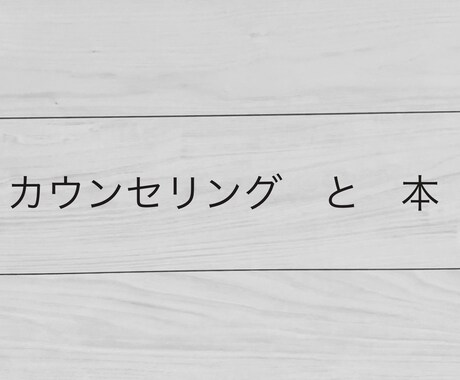 カウンセリング　と　本